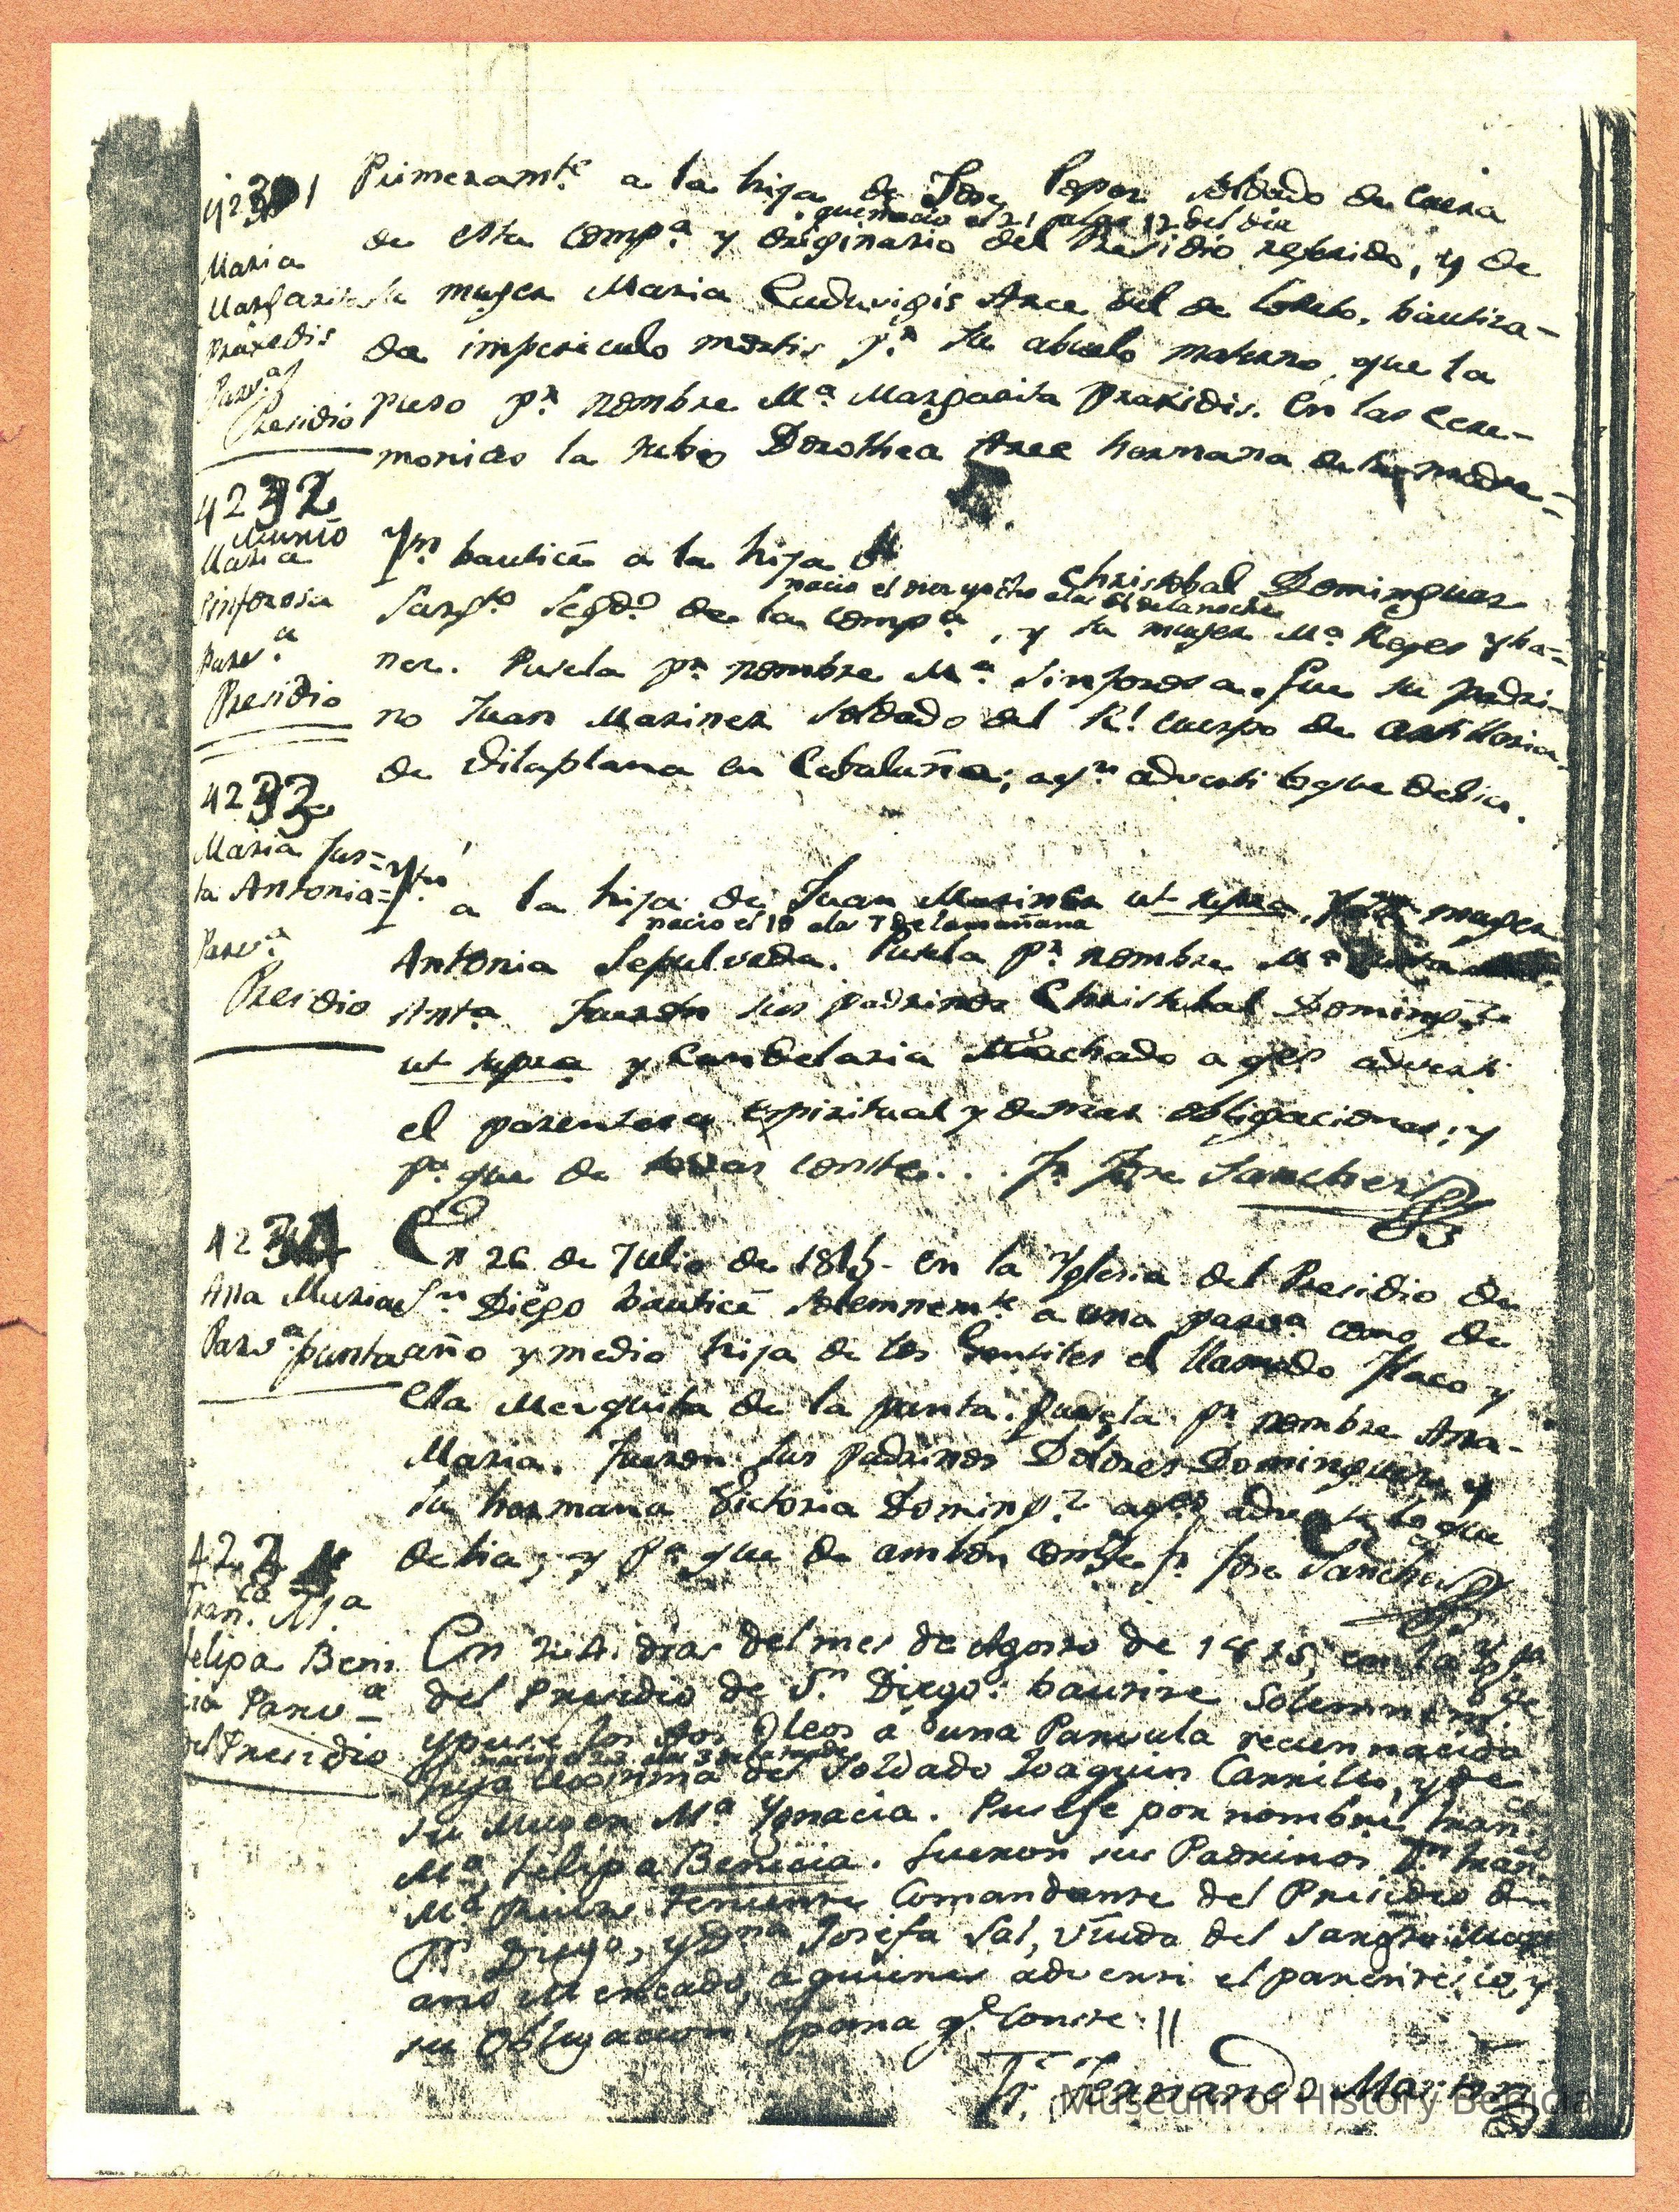 4231
Maria
Margarita
Praxedis
Parv.a
Presidio
Primeram.te a la hija de Jose Lopez soldado de Cuera
que nacio el 21 alas 12 del dia
de esta Comp.a y originario del Presidio referido, y de
su muger Maria Luduvigis Arce del de Loreto, bautiza-
da impericulo mortis p.r su abuelo materno, que la
puso p.r nombre M.a Margarita Praxidis. En las Cere-
monias la tubo Dorothea Arce hermana de la madre=
4232
Murió
Maria
Sinforosa
Parv.a
Presidio
Yt.n bauticé a la hija de Christobal Dominguez
nacio el diez y ocho alas de la noche
Sarg.to Seg.do de la Comp.a, y su muger M.a Reyes Yba-
ñez. Pusela p.r nombre M.a Sinforosa. Fue su padri-
no Juan Mariner soldado del R.l Cuerpo de artilleria
de Vilaplana en Cataluña; a q.n adverti lo que debia.
4233
Maria Jus=
ta Antonia=
Parv.a
Presidio
Yt.n a la hija de Juan Mariner ut supra, muger
nacio el 19 alas 7 de la mañana
Antonia Sepulveda. Pusela p.r nombre M.a
Ant.a Fueron sus padrinos Christobal Doming.z
ut supra y Candelaria Machado a q.es adverti
el parentesco espiritual y demas obligaciones; y
p.a que de todas conste... Fr. Jose Sanchez
4234
Ana Maria
Parv.a punta
En 26 de Julio de 1815 en la Yglesia del Presidio de
S.n Diego bauticé solemnem.te a una parv.a como de
año y medio hija de los Gentiles el llamado Flaco y
ella Merguita de la punta. Pusela p.r nombre Ana-
Maria. Fueron sus padrinos Dolores Dominguez y
su hermana Victoria Doming.z a q.es adverti lo que
debia; y p.a que de ambas conste Fr. Jose Sanchez
423
Fran.ca M.a
Felipa Beni
cia Parv.a
del Presidio
En dias del mes de Agosto de 1815, en la Ygl.a
del Presidio de S.n Diego: bautise Solemnem.te
y puse los Stos Oleos á una Parvula recien nacida
nacio el 23 alas 3 de la tarde
hija legitima del Soldado Joaquin Carrillo, y de
su Muger M.a Ygnacia. Pusele por nombre Fran.ca
M.a Felipa Benicia. Fueron sus Padrinos D.n Fran.co
M.a Ruiz Teniente Comandante del Presidio de
S.n Diego, y D.na Josefa Sal, Viuda del Sargto Mari
ano Mercado, a quienes adverti el parentesco, y
su Obligacion. y para q.e Conste. ||
Fr. Fernando Martin
Museum of History Benicia